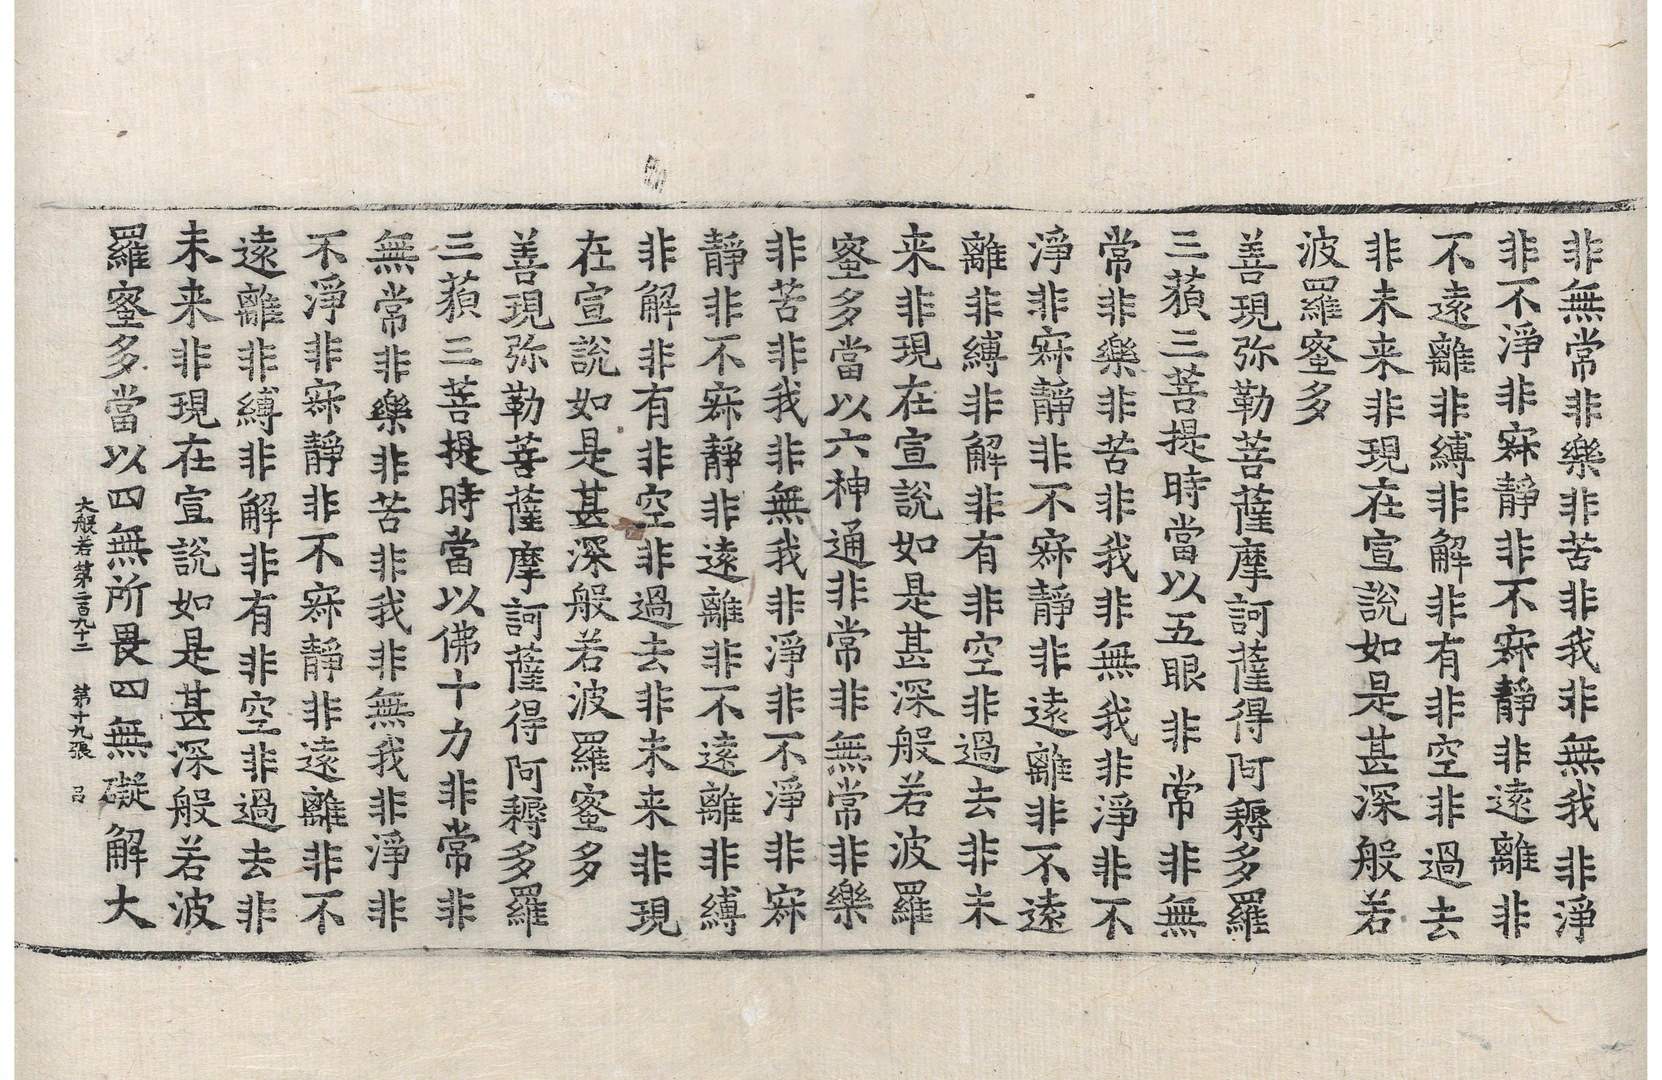 非無常非樂非苦非我非無我非淨
非不淨非寂靜非不寂靜非遠離非
不遠離非縛非解非有非空非過去
非未来非現在宣說如是甚深般若
波羅蜜多
善現弥勒菩薩摩訶薩得阿耨多羅
三藐三菩提時當以五眼非常非無
常非樂非苦非我非無我非淨非不
淨非寂靜非不寂靜非遠離非不遠
離非縛非解非有非空非過去非未
来非現在宣說如是甚深般若波羅
蜜多當以六神通非常非無常非樂
非苦非我非無我非淨非不淨非寂
靜非不寂靜非遠離非不遠離非縛
非解非有非空非過去非未来非現
在宣說如是甚深般若波羅蜜多
善現弥勒菩薩摩訶薩得阿耨多羅
三藐三菩提時當以佛十力非常非
無常非樂非苦非我非無我非淨非
不淨非寂靜非不寂靜非遠離非不
遠離非縛非解非有非空非過去非
未来非現在宣說如是甚深般若波
羅蜜多當以四無所畏四無礙解大
大般若第二百九十二 第十九張 呂